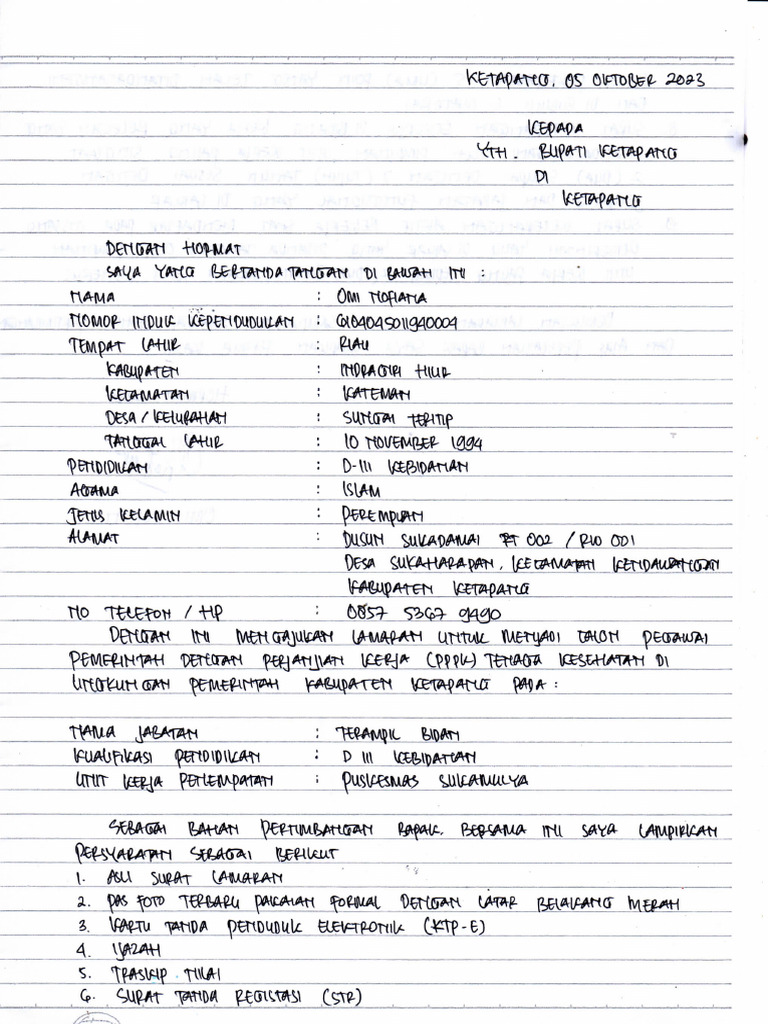 KETAPANG, 05 OKTOBER 2023
KEPADA
YTH. BUPATI KETAPANG
DI
KETAPANG
DENGAN HORMAT
SAYA YANG BERTANDA TANGAN DI BAWAH INI :
NAMA : ONI NOFIANA
NOMOR INDUK KEPENDUDUKAN : 6104045011940004
TEMPAT LAHIR : RIAU
KABUPATEN : INDRAGIRI HILIR
KECAMATAN : KATEMAN
DESA / KELURAHAN : SUNGAI TERITIP
TANGGAL LAHIR : 10 NOVEMBER 1994
PENDIDIKAN : D-III KEBIDANAN
AGAMA : ISLAM
JENIS KELAMIN : PEREMPUAN
ALAMAT : DUSUN SUKADAMAI RT 002 / RW 001
DESA SUKAHARAPAN, KECAMATAN KENDAWANGAN
KABUPATEN KETAPANG
NO TELEFON / HP : 0857 5367 9490
DENGAN INI MENGAJUKAN LAMARAN UNTUK MENJADI CALON PEGAWAI
PEMERINTAH DENGAN PERJANJIAN KERJA (PPPK) TENAGA KESEHATAN DI
LINGKUNGAN PEMERINTAH KABUPATEN KETAPANG PADA :
NAMA JABATAN : TERAMPIL BIDAN
KUALIFIKASI PENDIDIKAN : D III KEBIDANAN
UNIT KERJA PENEMPATAN : PUSKESMAS SUKAMULYA
SEBAGAI BAHAN PERTIMBANGAN BAPAK, BERSAMA INI SAYA LAMPIRKAN
PERSYARATAN SEBAGAI BERIKUT
1. ASLI SURAT LAMARAN
2. PAS FOTO TERBARU PAKAIAN FORMAL DENGAN LATAR BELAKANG MERAH
3. KARTU TANDA PENDUDUK ELEKTRONIK (KTP-E)
4. IJAZAH
5. TRASKIP NILAI
6. SURAT TANDA REGISTASI (STR)